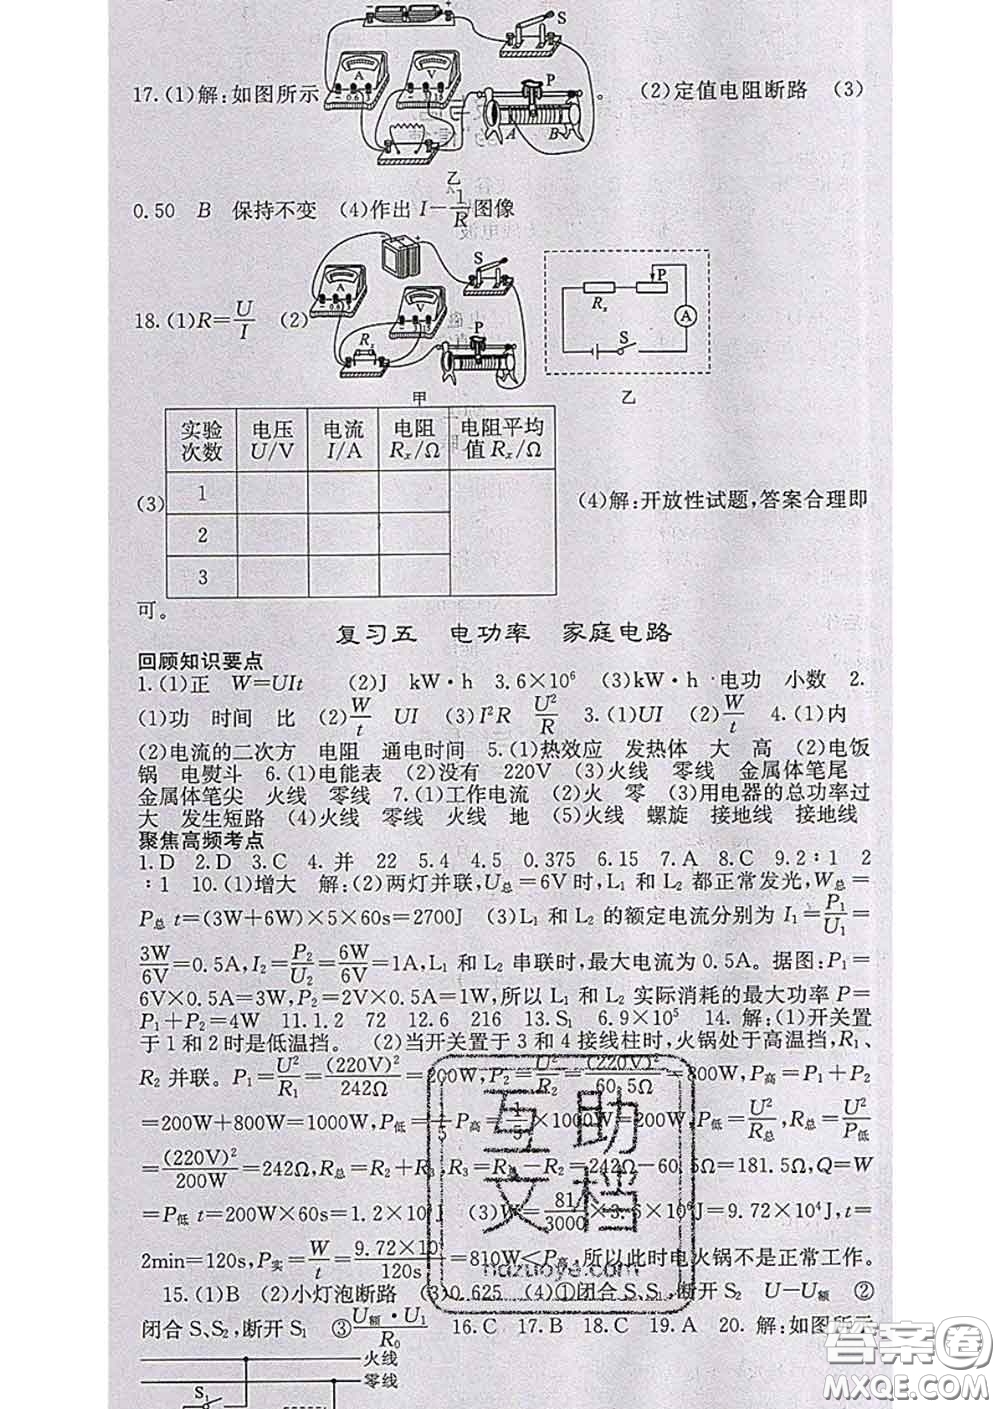 17.(1)解:如图所示
。 (2)定值电阻断路 (3)
A 0.6 3 V 3 15 S P A B
乙
0.50 B 保持不变 (4)作出 I-1/R 图像
18.(1)R=U/I (2)
A 0.6 3 V 3 15 S P Rx
甲
Rx P S A
乙
实验次数 电压U/V 电流I/A 电阻Rx/Ω 电阻平均值Rx/Ω
1
2
3
(3) (4)解:开放性试题,答案合理即
可。
复习五 电功率 家庭电路
回顾知识要点
1.(1)正 W=UIt (2)J kW·h 3.6×10⁶ (3)kW·h 电功 小数 2.
(1)功 时间 比 (2)W/t UI (3)I²R U²/R 3.(1)UI (2)W/t 4.(1)内
(2)电流的二次方 电阻 通电时间 5.(1)热效应 发热体 大 高 (2)电饭
锅 电熨斗 6.(1)电能表 (2)没有 220V (3)火线 零线 金属体笔尾
金属体笔尖 火线 零线 7.(1)工作电流 (2)火 零 (3)用电器的总功率过
大 发生短路 (4)火线 零线 火线 地 (5)火线 螺旋 接地线 接地线
聚焦高频考点
1.D 2.D 3.C 4.并 22 5.4 4.5 0.375 6.15 7.A 8.C 9.2∶1 2
∶1 10.(1)增大 解:(2)两灯并联,U总=6V时,L₁ 和 L₂ 都正常发光,W总
=P总 t=(3W+6W)×5×60s=2700J (3)L₁ 和 L₂ 的额定电流分别为 I₁=P₁/U₁=
3W/6V=0.5A,I₂=P₂/U₂=6W/6V=1A,L₁ 和 L₂ 串联时,最大电流为 0.5A。据图:P₁=
6V×0.5A=3W,P₂=2V×0.5A=1W,所以 L₁ 和 L₂ 实际消耗的最大功率 P=
P₁+P₂=4W 11.1.2 72 12.6 216 13.S₁ 6.9×10⁵ 14.解:(1)开关置
于 1 和 2 时是低温挡。 (2)当开关置于 3 和 4 接线柱时,火锅处于高温挡,R₁、
R₂ 并联。P₁=U²/R₁=(220V)²/242Ω=200W,P₂=U²/R₂=(220V)²/60.5Ω=800W,P高=P₁+P₂
=200W+800W=1000W,P低=1/5 P高=1/5×1000W=200W,P低=U²/R总,R总=U²/P低
=(220V)²/200W=242Ω,R总=R₂+R₃,R₃=R总-R₂=242Ω-60.5Ω=181.5Ω,Q=W
=P低 t=200W×60s=1.2×10⁴J (3)W=81/3000×3.6×10⁶J=9.72×10⁴J,t=
2min=120s,P实=W/t=9.72×10⁴J/120s=810W<P高,所以此时电火锅不是正常工作。
15.(1)B (2)小灯泡断路 (3)0.625 (4)①闭合 S、S₁,断开 S₂ U-U额 ②
闭合 S、S₂,断开 S₁ ③U额·U₁/R₀ 16.C 17.B 18.C 19.A 20.解:如图所示
火线
零线
S₁
互助文档
hdzuoye.com
答案圈
MXQE.COM